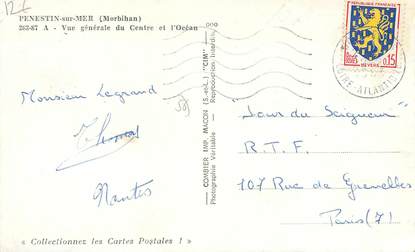 PENESTIN-sur-MER (Morbihan)
263-87 A - Vue générale du Centre et l'Océan
Monsieur Legrand
Thomas
Nantes
« Collectionnez les Cartes Postales ! »
COMBIER IMP. MACON (S.-et-L.) "CIM"
Photographie Véritable - Reproduction Interdite
REPUBLIQUE FRANÇAISE
POSTES
0,15
NEVERS
LOIRE-ATLANTIQUE
"Jour du Seigneur"
R.T.F.
107 Rue de Grenelles
Paris (7)